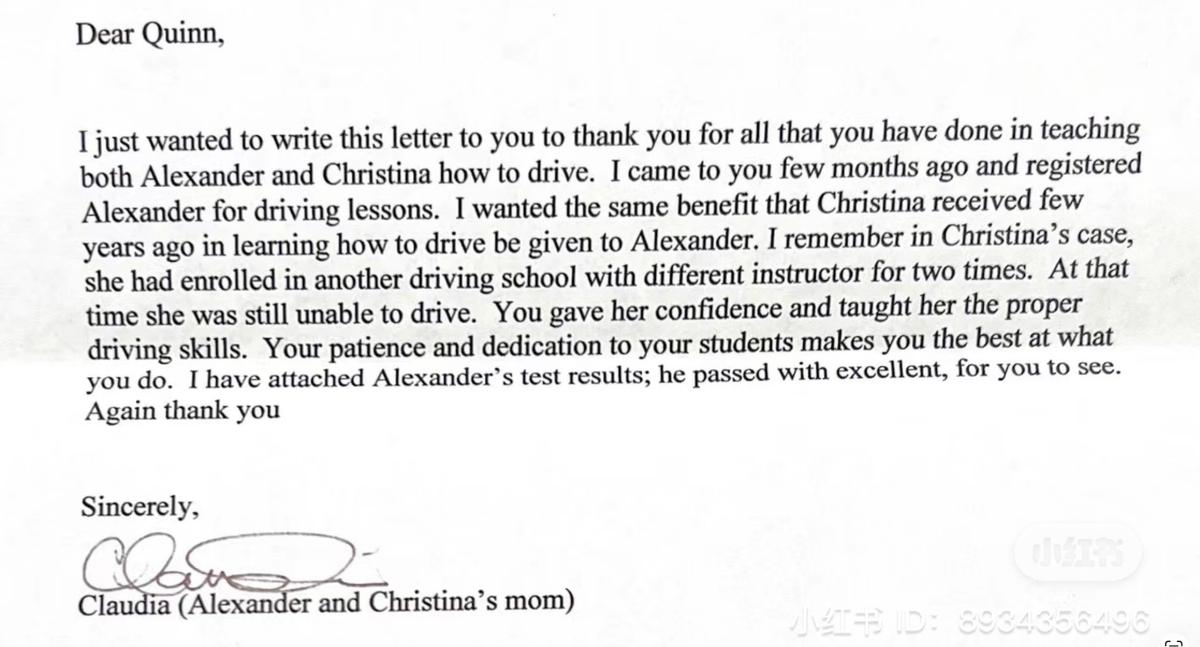 Dear Quinn,
I just wanted to write this letter to you to thank you for all that you have done in teaching
both Alexander and Christina how to drive. I came to you few months ago and registered
Alexander for driving lessons. I wanted the same benefit that Christina received few
years ago in learning how to drive be given to Alexander. I remember in Christina's case,
she had enrolled in another driving school with different instructor for two times. At that
time she was still unable to drive. You gave her confidence and taught her the proper
driving skills. Your patience and dedication to your students makes you the best at what
you do. I have attached Alexander's test results; he passed with excellent, for you to see.
Again thank you
Sincerely,
Claudia (Alexander and Christina's mom)
小红书
小红书 ID: 8934356496